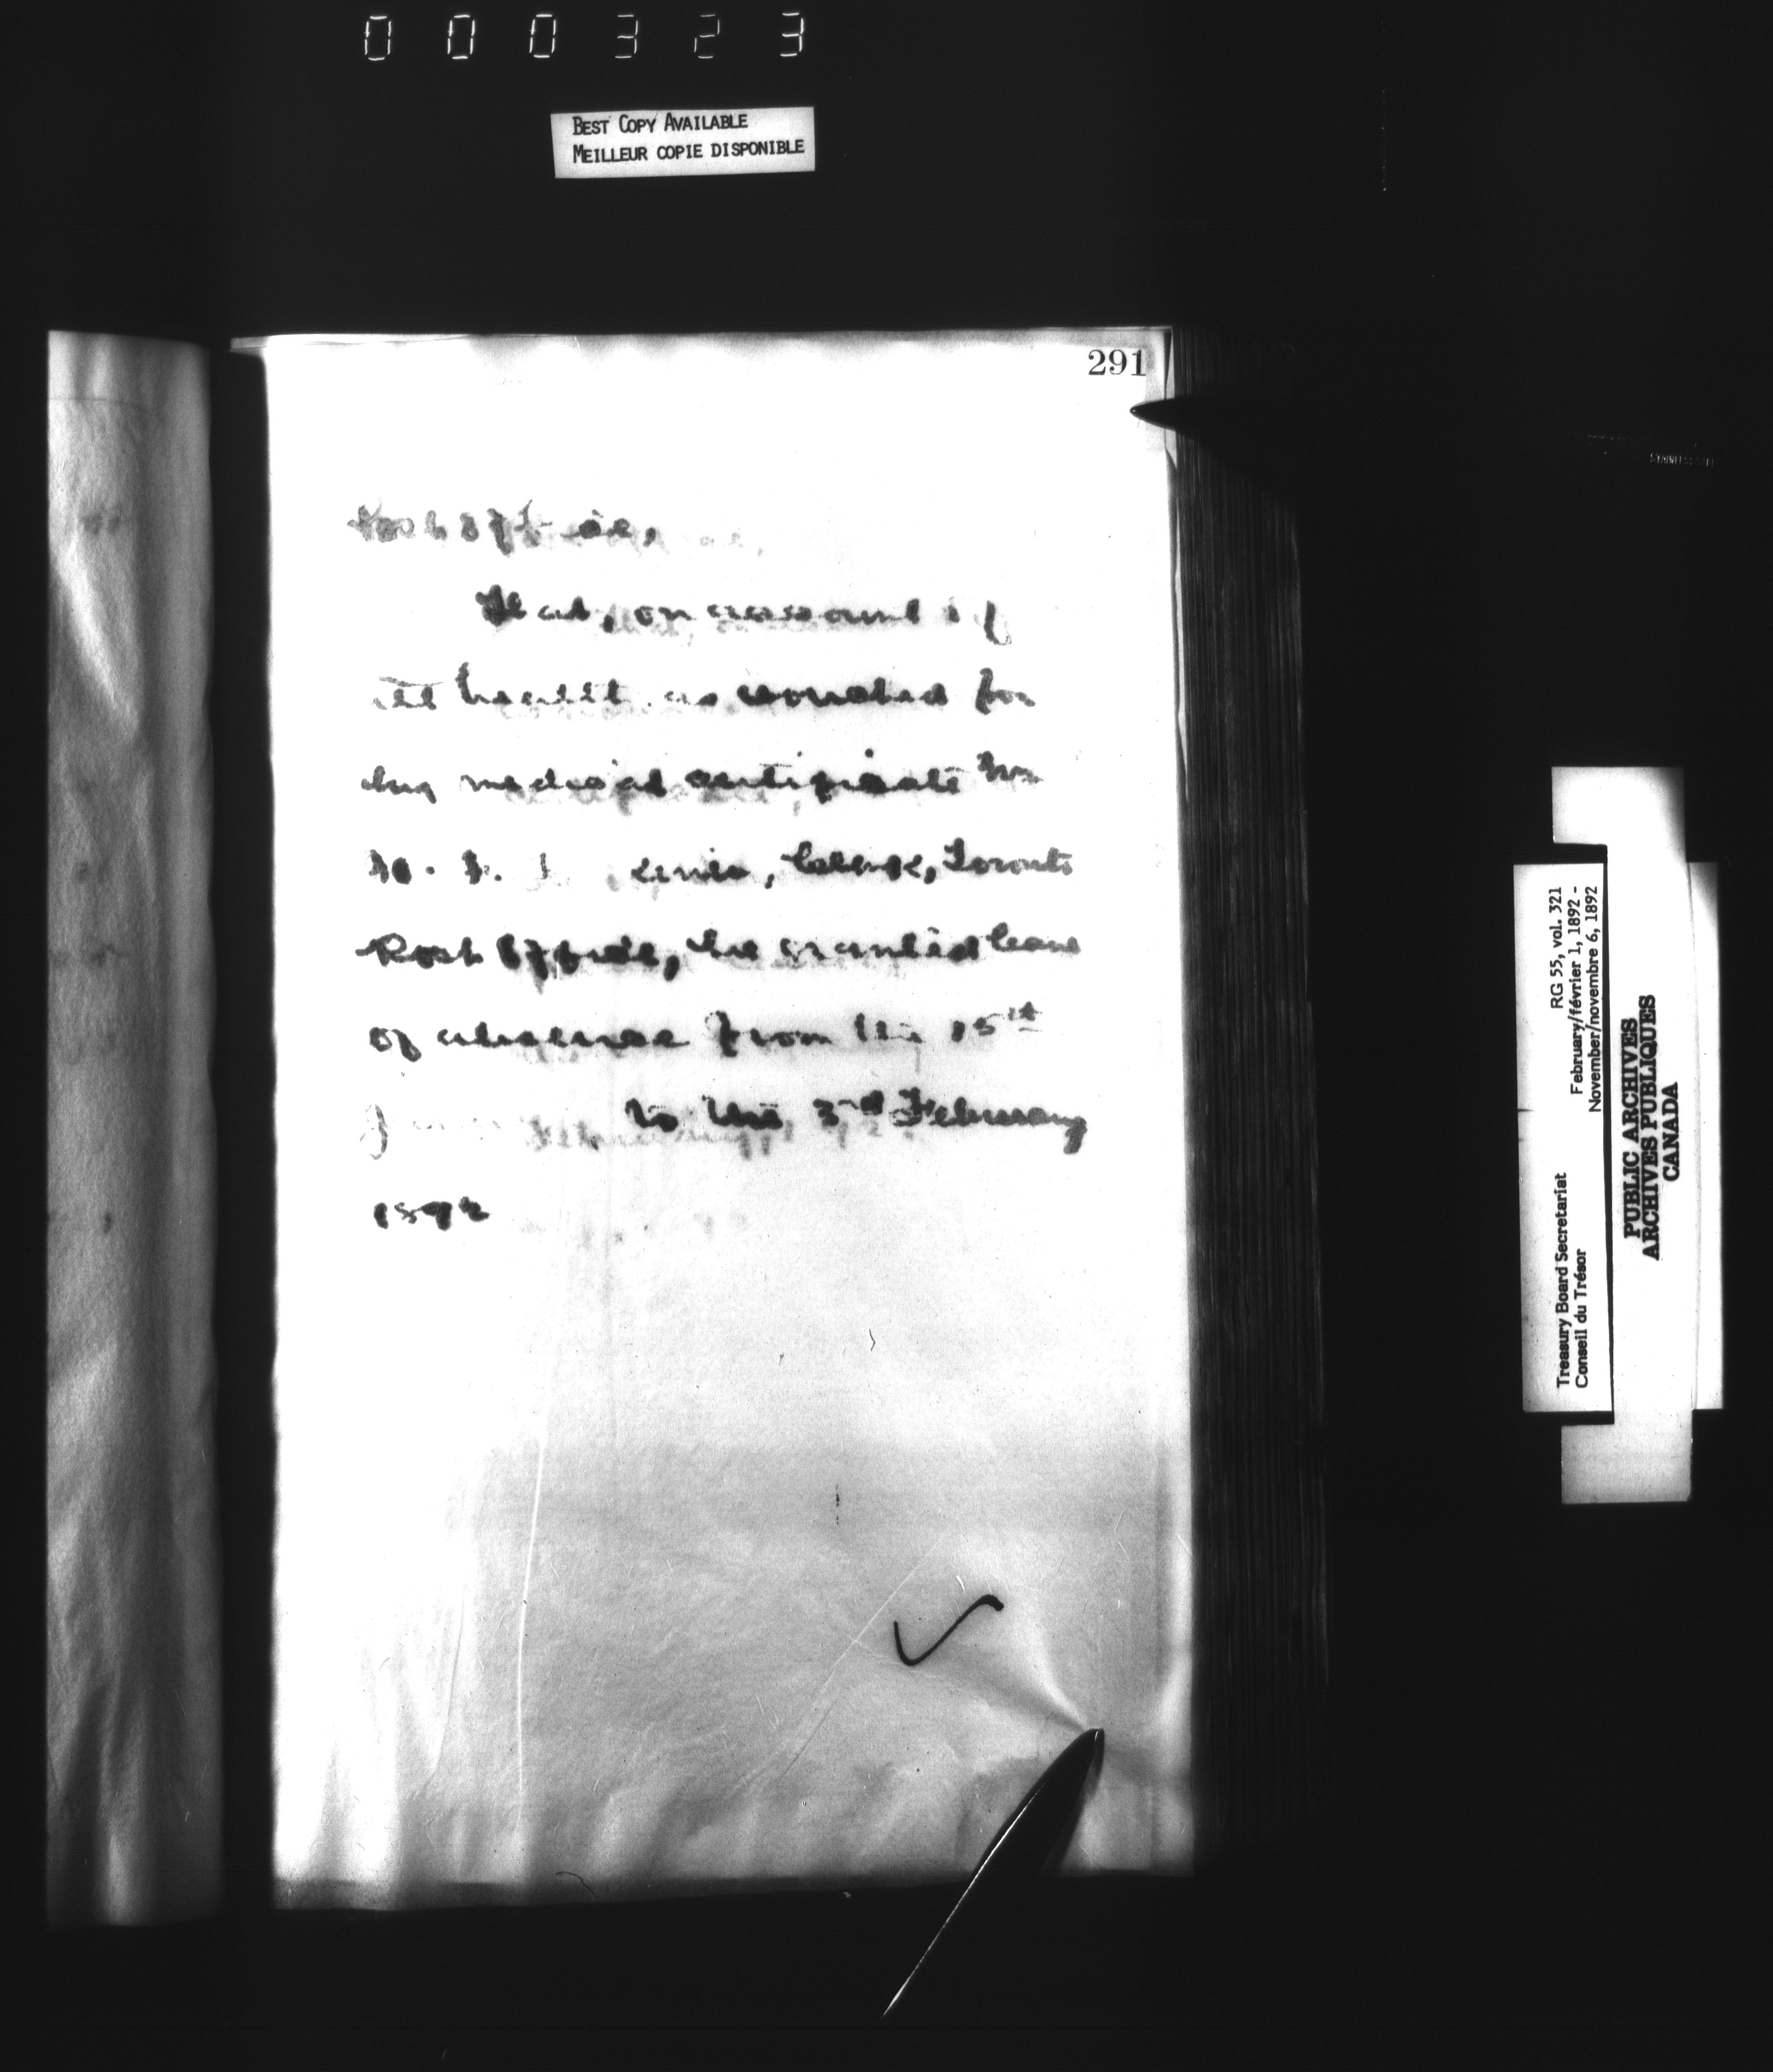 000323
BEST COPY AVAILABLE
MEILLEUR COPIE DISPONIBLE
291
Post Office,
That, on account of
ill health as vouched for
by medical certificate Mr
Clerk, Toronto
Post Office, be granted leave
of absence from the 15th
to the 3rd February
1892
RG 55, vol. 321
February/février 1, 1892 -
November/novembre 6, 1892
Treasury Board Secretariat
Conseil du Trésor
PUBLIC ARCHIVES
ARCHIVES PUBLIQUES
CANADA